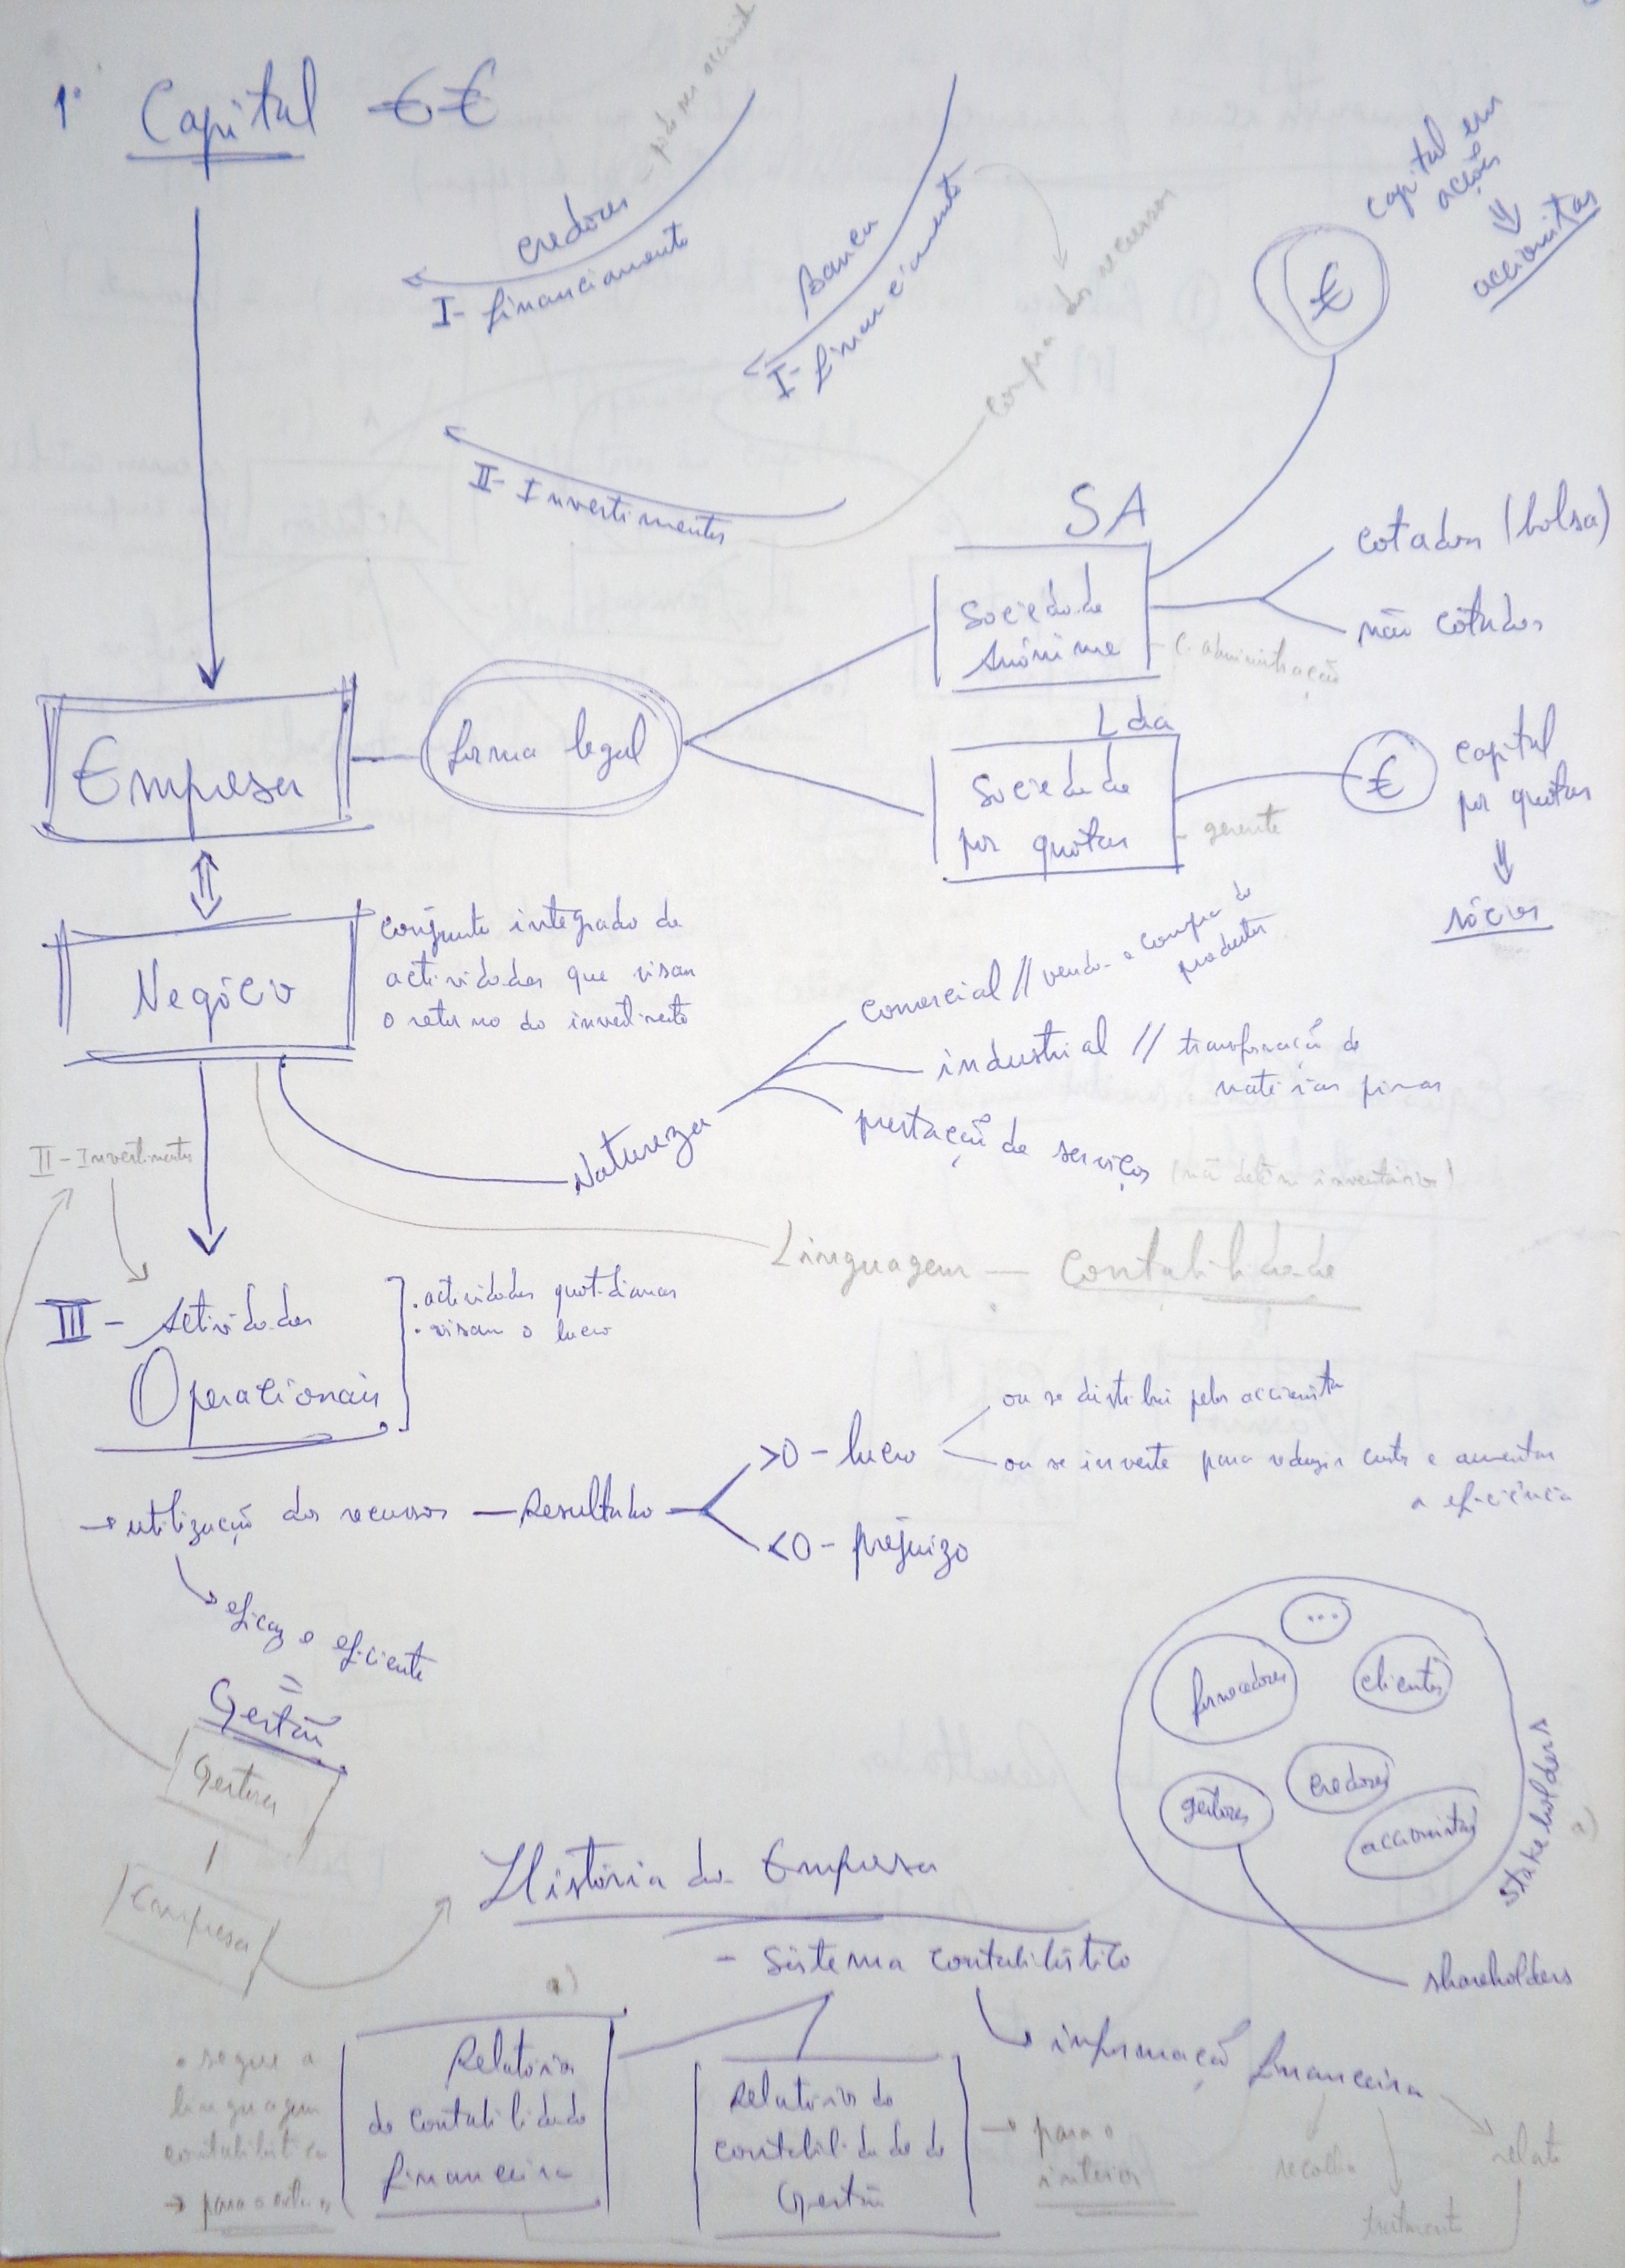 1º Capital €€
credores - podem ser accionist
I - financiamento
Banca
I - financiamento
compra dos recursos
II - Investimentos
capital em
acções
⇓
accionistas
€
SA
Sociedade
Anónima
C. administração
cotadas (bolsa)
não cotadas
Empresa
forma legal
Lda
Sociedade
por quotas
gerente
€
capital
por quotas
⇓
sócios
Negócio
conjunto integrado de
actividades que visam
o retorno do investimento
Natureza
comercial // venda e compra de
produtos
industrial // transformação de
matérias primas
prestação de serviços (não detém inventários)
Linguagem — Contabilidade
II - Investimentos
III - Actividades
Operacionais
. actividades quotidianas
. visam o lucro
→ utilização dos recursos — Resultado
>0 - lucro
ou se distribui pelos accionistas
ou se investe para reduzir custos e aumentar
a eficiência
<0 - prejuízo
eficaz e eficiente
=
Gestão
Gestores
Empresa
...
fornecedores
clientes
credores
gestores
accionistas
stakeholders
a)
shareholders
História da Empresa
- Sistema contabilístico
a)
Relatórios
de contabilidade
financeira
• segue a
linguagem
contabilística
→ para o exterior
Relatórios de
contabilidade de
Gestão
→ para o
interior
informação financeira
recolha
tratamento
relato